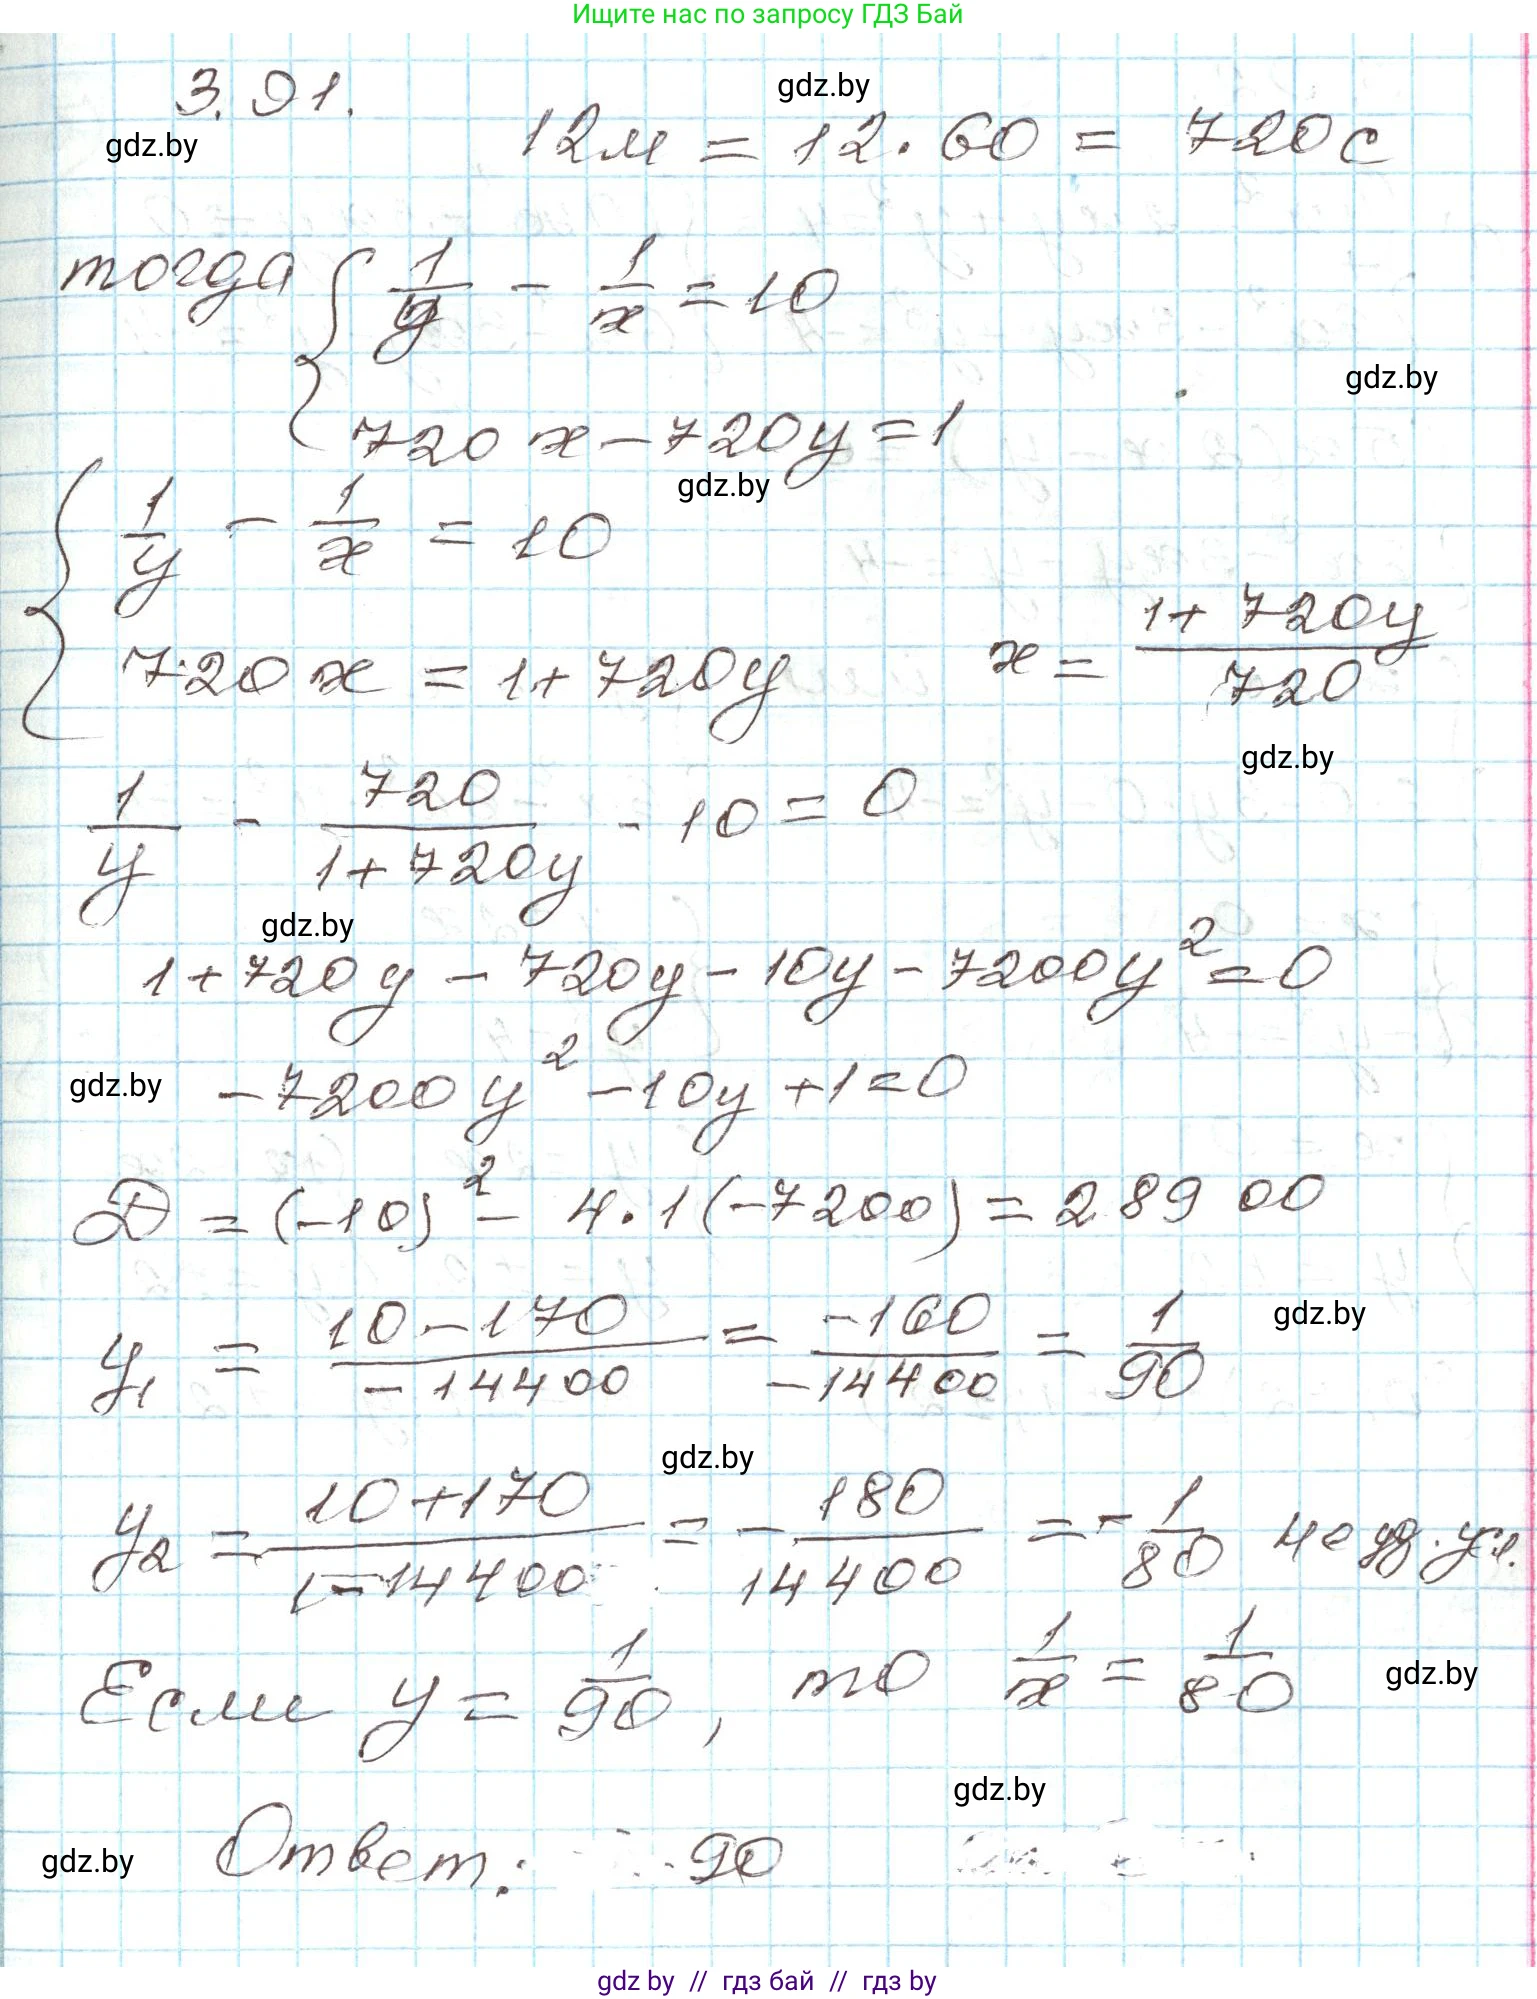 Ищите нас по запросу ГДЗ Бай
3.91.
gdz.by
gdz.by
12м = 12·60 = 720 с
тогда { 1/y - 1/x = 10
gdz.by
720x - 720y = 1
gdz.by
{ 1/y - 1/x = 10
720x = 1 + 720y x = (1 + 720y)/720
gdz.by
1/y - 720/(1 + 720y) - 10 = 0
gdz.by
1 + 720y - 720y - 10y - 7200y² = 0
gdz.by
-7200y² - 10y + 1 = 0
D = (-10)² - 4·1(-7200) = 28900
y₁ = (10 - 170)/(-14400) = -160/-14400 = 1/90
gdz.by
gdz.by
y₂ = (10 + 170)/(-14400) = -180/14400 = -1/80 не уд. ул.
Если y = 1/90, то 1/x = 1/80
gdz.by
gdz.by
Ответ: 90
gdz.by
gdz by // гдз бай // gdz by